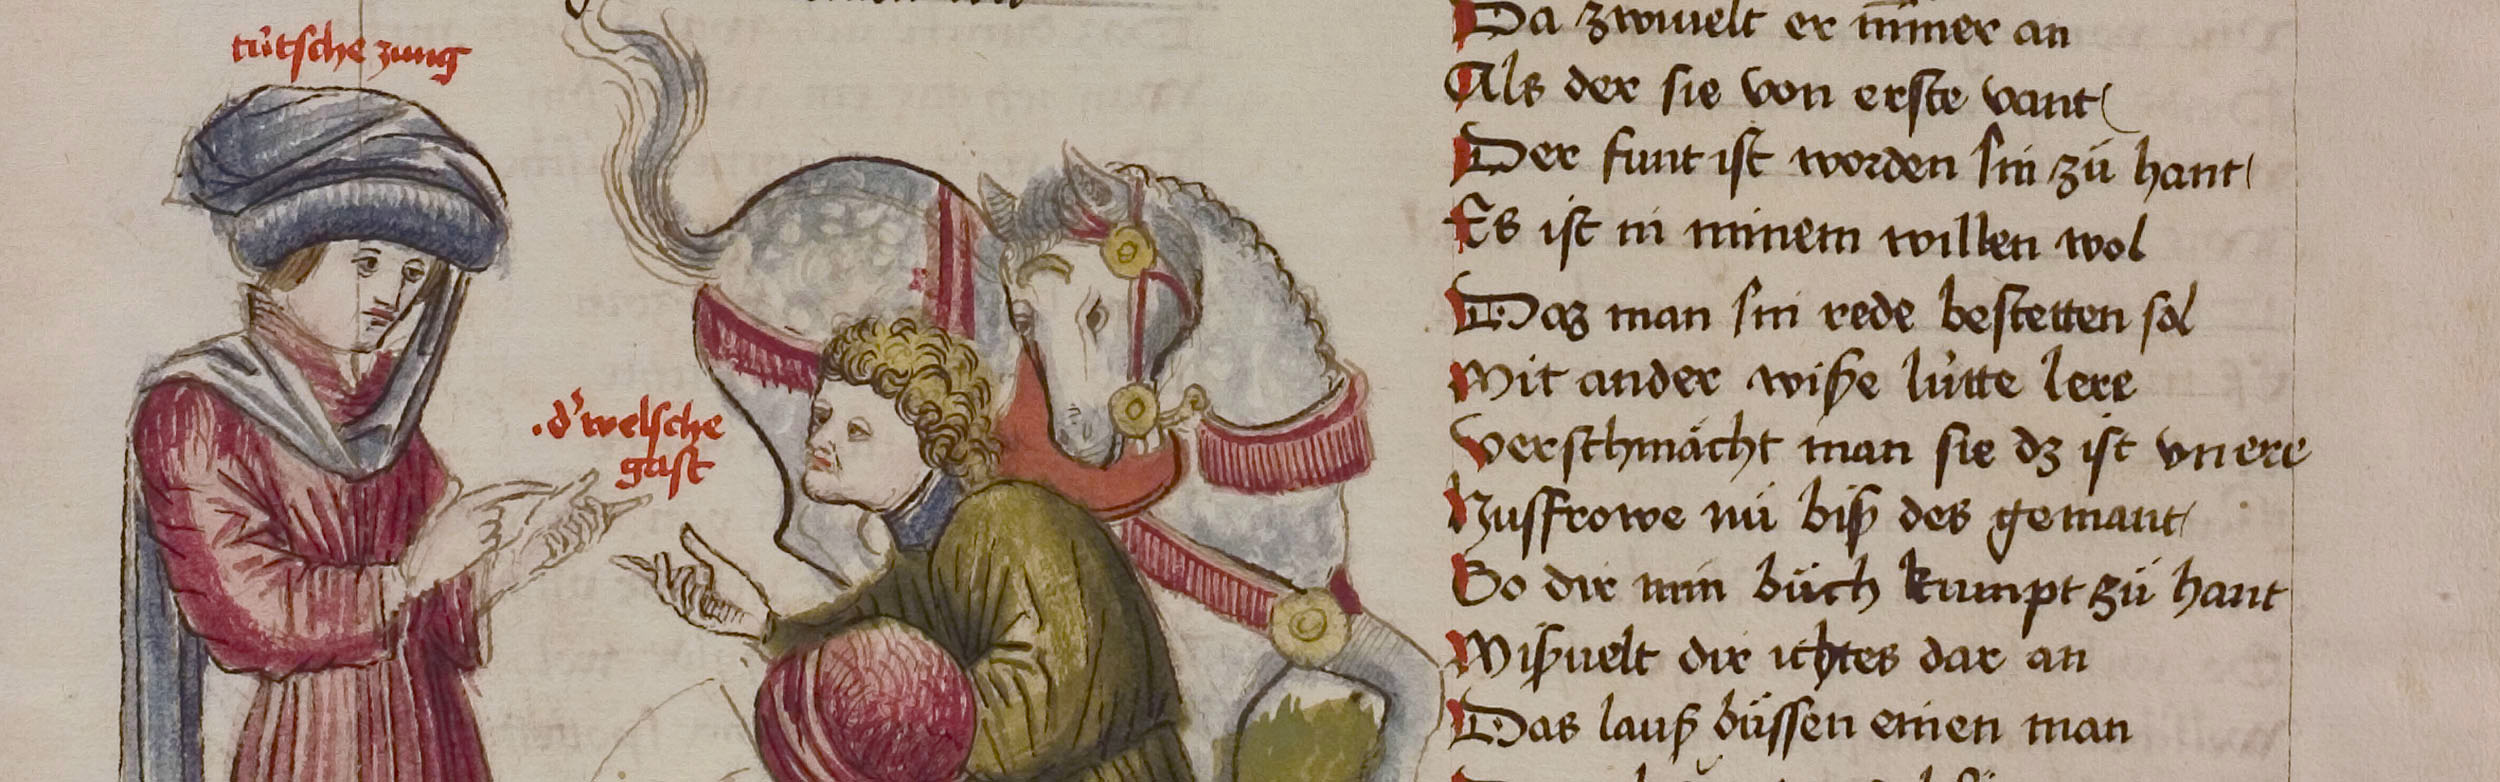 tútsche zung
.d' welsche
gast
Da zwiuelt er im̄er an
Als der sie von erste vant
Der funt ist worden sin zü hant
Es ist in minem willen wol
Daz man sin rede bestetten sol
Mit ander wiße lútte lere
Verschmächt man sie dz ist vnere
Husfrowe nü biß des gemant
So dir min büch kumpt zü hant
Mißuelt dir ichtes dar an
Das lauß büssen einen man